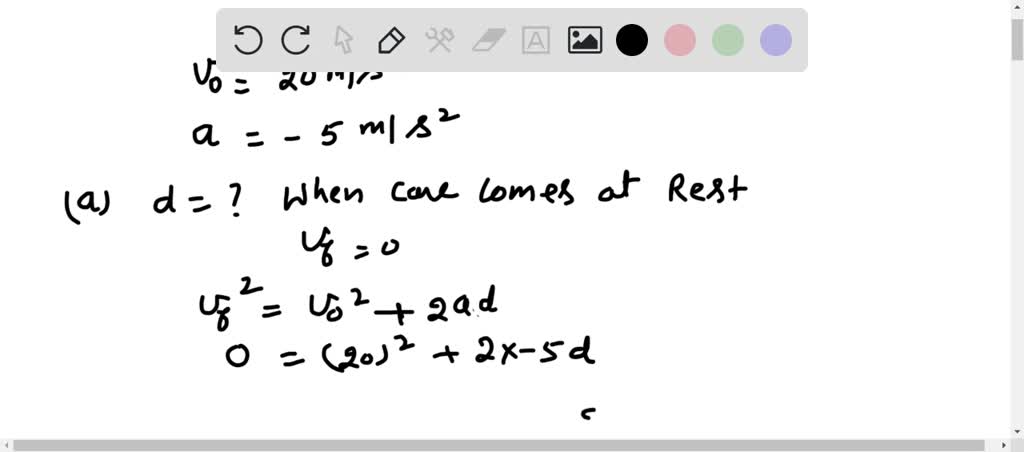 v₀ = 20 m/s
a = - 5 m/s²
(a) d = ? When care comes at Rest
v_f = 0
v_f² = v₀² + 2ad
0 = (20)² + 2x-5d